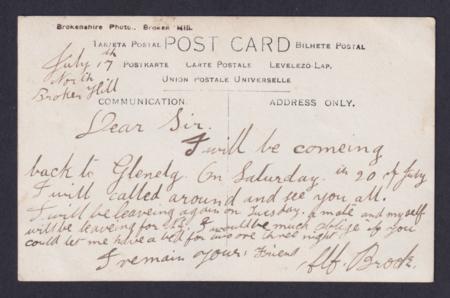 Brokenshire Photo., Broken Hill.
TARJETA POSTAL POST CARD BILHETE POSTAL
POSTKARTE CARTE POSTALE LEVELEZO-LAP.
UNION POSTALE UNIVERSELLE
COMMUNICATION. ADDRESS ONLY.
July 17th
North
Broken Hill
Dear Sir.
I will be comeing
back to Glenelg On Saturday. 20 of July
I will called around and see you all.
I will be leaveing again on Tuesday. a mate and my self
will be leaveing for I would be much oblige if you
could let me have a bed for two one three night
I remain Your Friend
Alf. Brook.